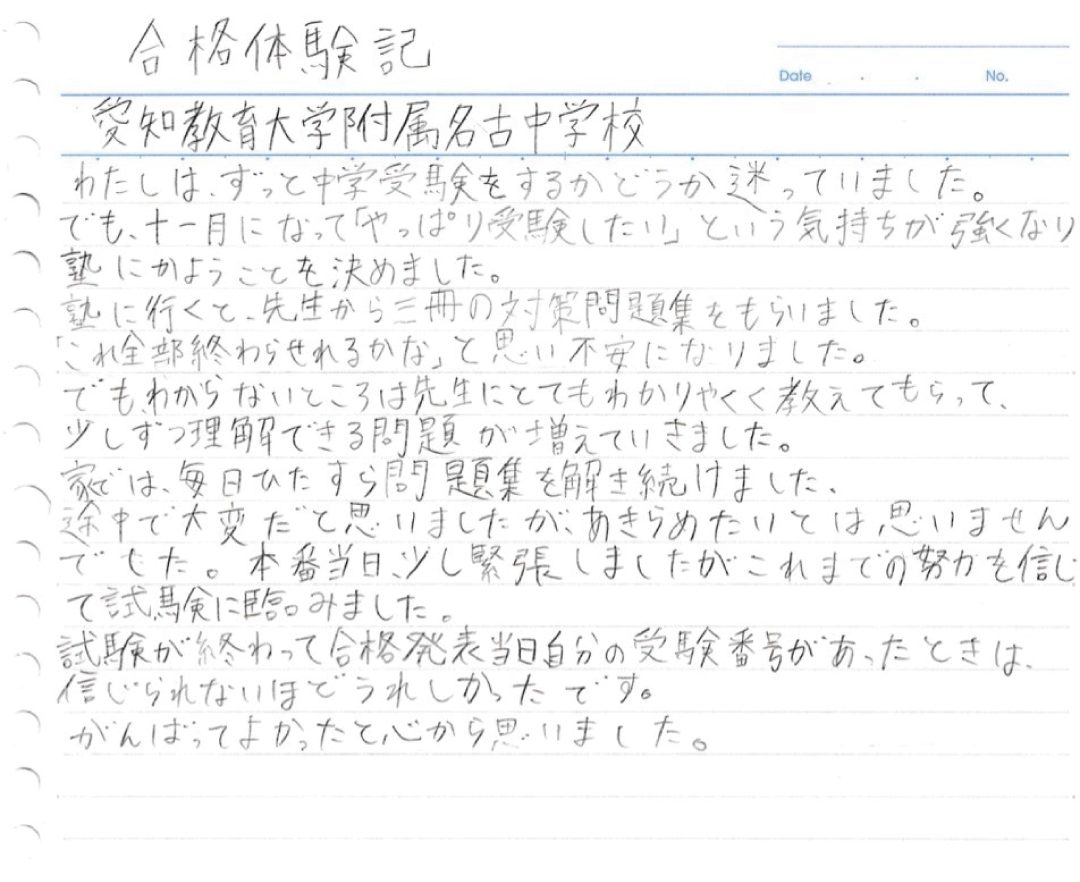 合格体験記
Date . . No.
愛知教育大学附属名古中学校
わたしは、ずっと中学受験をするかどうか迷っていました。
でも、十一月になって「やっぱり受験したい」という気持ちが強くなり
塾にかようことを決めました。
塾に行くと、先生から三冊の対策問題集をもらいました。
「これ全部終わらせれるかな」と思い不安になりました。
でも、わからないところは先生にとてもわかりやくく教えてもらって、
少しずつ理解できる問題が増えていきました。
家では、毎日ひたすら問題集を解き続けました、
途中で大変だと思いましたが、あきらめたいとは思いません
でした。本番当日、少し緊張しましたがこれまでの努力を信じ
て試験に臨みました。
試験が終わって合格発表当日自分の受験番号があったときは、
信じられないほどうれしかったです。
がんばってよかったと心から思いました。